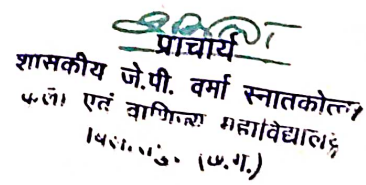 प्राचार्य
शासकीय जे.पी. वर्मा स्नातकोत्त
कला एवं वाणिज्य महाविद्यालय
(छ.ग.)